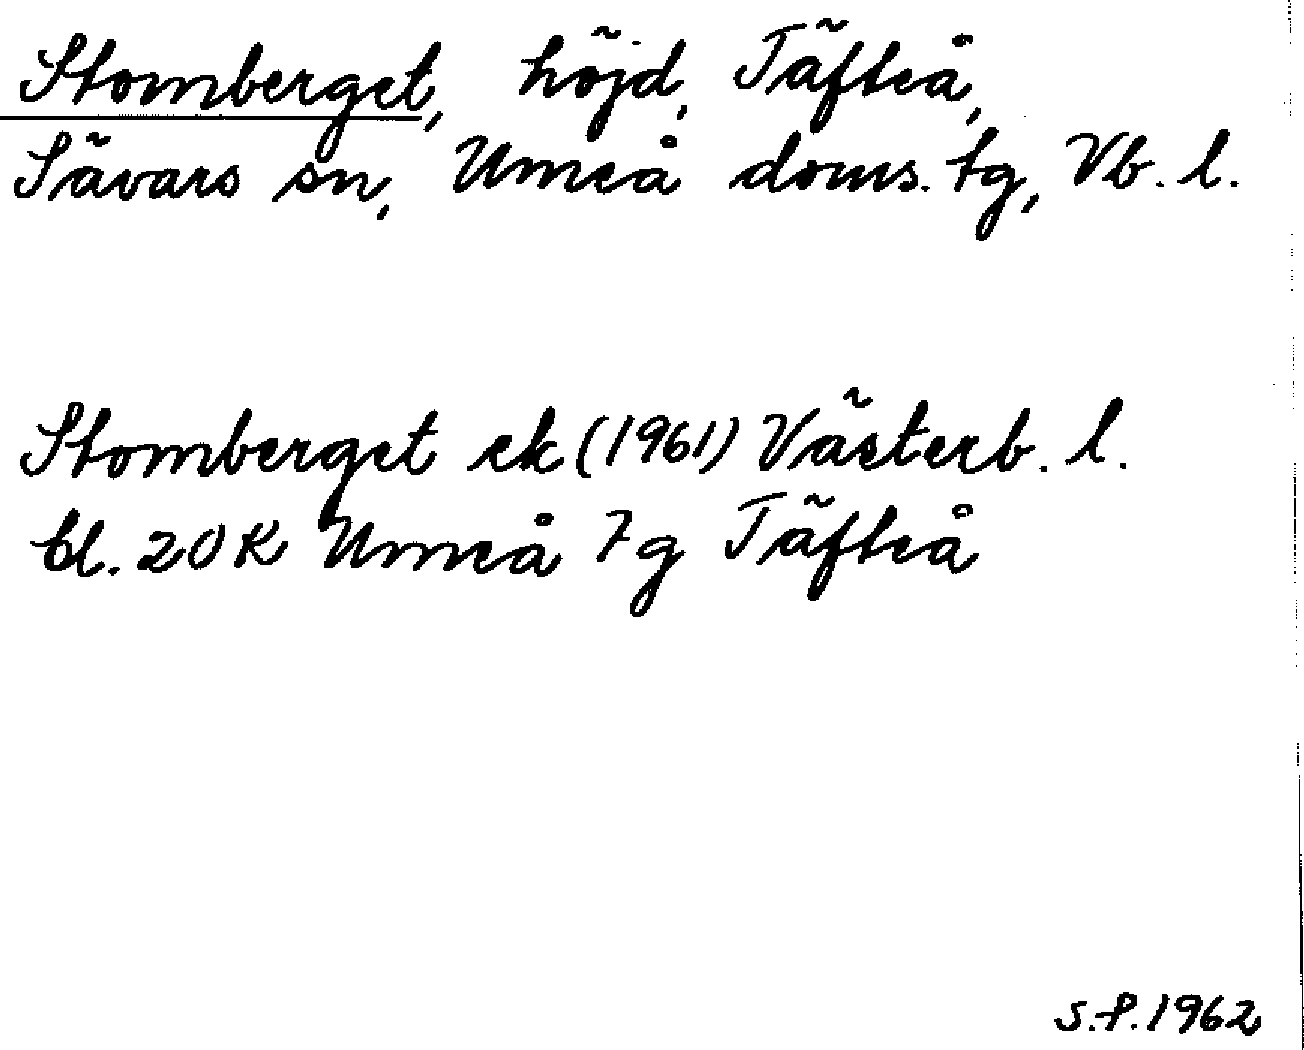 Stomberget, höjd, Täfteå,
Sävars sn, Umeå doms. tg, Vb. l.
Stomberget ek (1961) Västerb. l.
bl. 20K Umeå 7g Täfteå
S.P. 1962